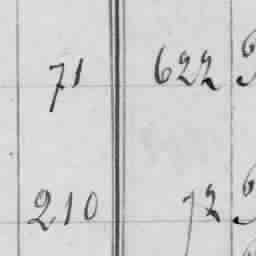 71 622
210 72